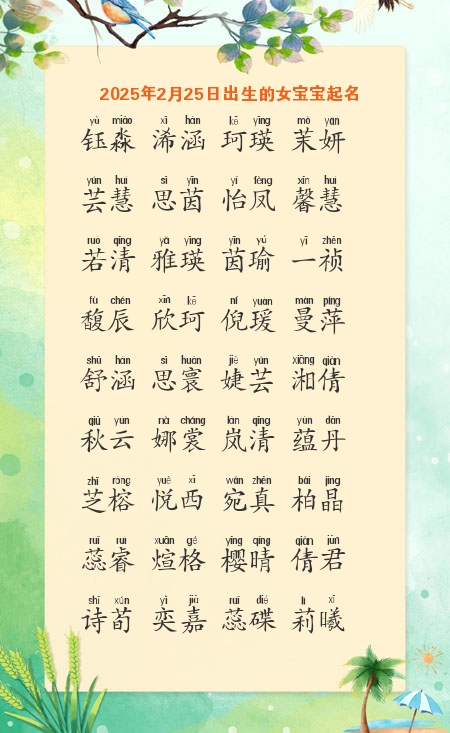 2025年2月25日出生的女宝宝起名
yù miǎo xī hán kē yīng mò yán
钰淼 浠涵 珂瑛 茉妍
yún huì sī yīn yí fèng xīn huì
芸慧 思茵 怡凤 馨慧
ruò qīng yǎ yīng yīn yú yī zhēn
若清 雅瑛 茵瑜 一祯
fù chén xīn kē ní yuàn màn píng
馥辰 欣珂 倪瑗 曼萍
shū hán sī huán jié yún xiāng qiàn
舒涵 思寰 婕芸 湘倩
qiū yún nà cháng lán qīng yùn dān
秋云 娜裳 岚清 蕴丹
zhī róng yuè xī wǎn zhēn bǎi jīng
芝榕 悦西 宛真 柏晶
ruǐ ruì xuān gé yīng qíng qiàn jūn
蕊睿 煊格 樱晴 倩君
shī xún yì jiā ruǐ dié lì xī
诗荀 奕嘉 蕊碟 莉曦